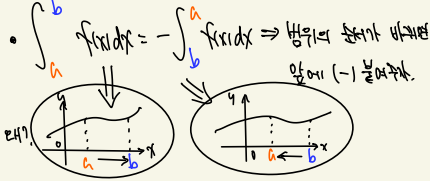 • ∫_a^b f(x)dx = -∫_b^a f(x)dx ⇒ 범위의 순서가 바뀌면
앞에 (-) 붙여주자.
왜?
y
0
a → b
x
y
0
a ← b
x